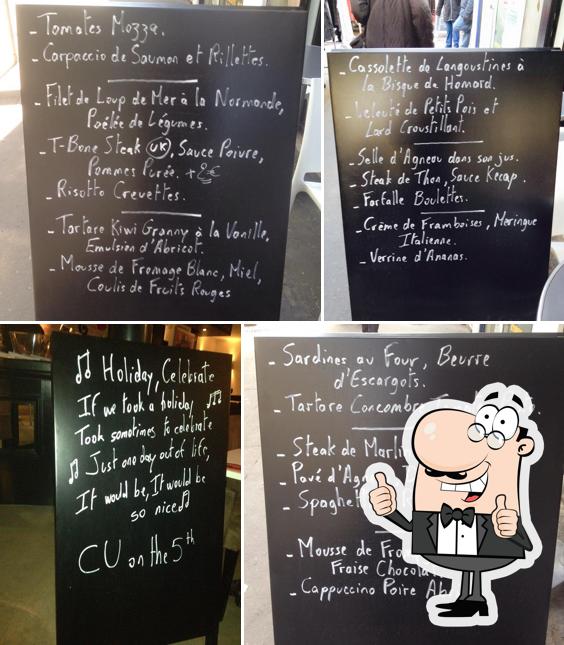 - Tomates Mozza.
- Carpaccio de Saumon et Rillettes.
- Filet de Loup de Mer à la Normande,
Poêlée de Légumes.
- T-Bone Steak UK, Sauce Poivre,
Pommes Purée. + 2€
- Risotto Crevettes.
- Tartare Kiwi Granny à la Vanille,
Emulsion d'Abricot.
- Mousse de Fromage Blanc, Miel,
Coulis de Fruits Rouges
- Cassolette de Langoustines à
la Bisque de Homard.
- Velouté de Petits Pois et
Lard Croustillant.
- Selle d'Agneau dans son jus.
- Steak de Thon, Sauce Kecap.
- Farfalle Boulettes.
- Crème de Framboises, Meringue
Italienne.
- Verrine d'Ananas.
♫ Holiday, Celebrate
If we took a holiday ♫
Took sometimes to celebrate
♫ Just one day out of life,
It would be, It would be
so nice ♫
CU on the 5th
- Sardines au Four, Beurre
d'Escargots.
- Tartare
- Steak de
- Pavé
- Mousse de
Fraise
- Cappuccino Poire